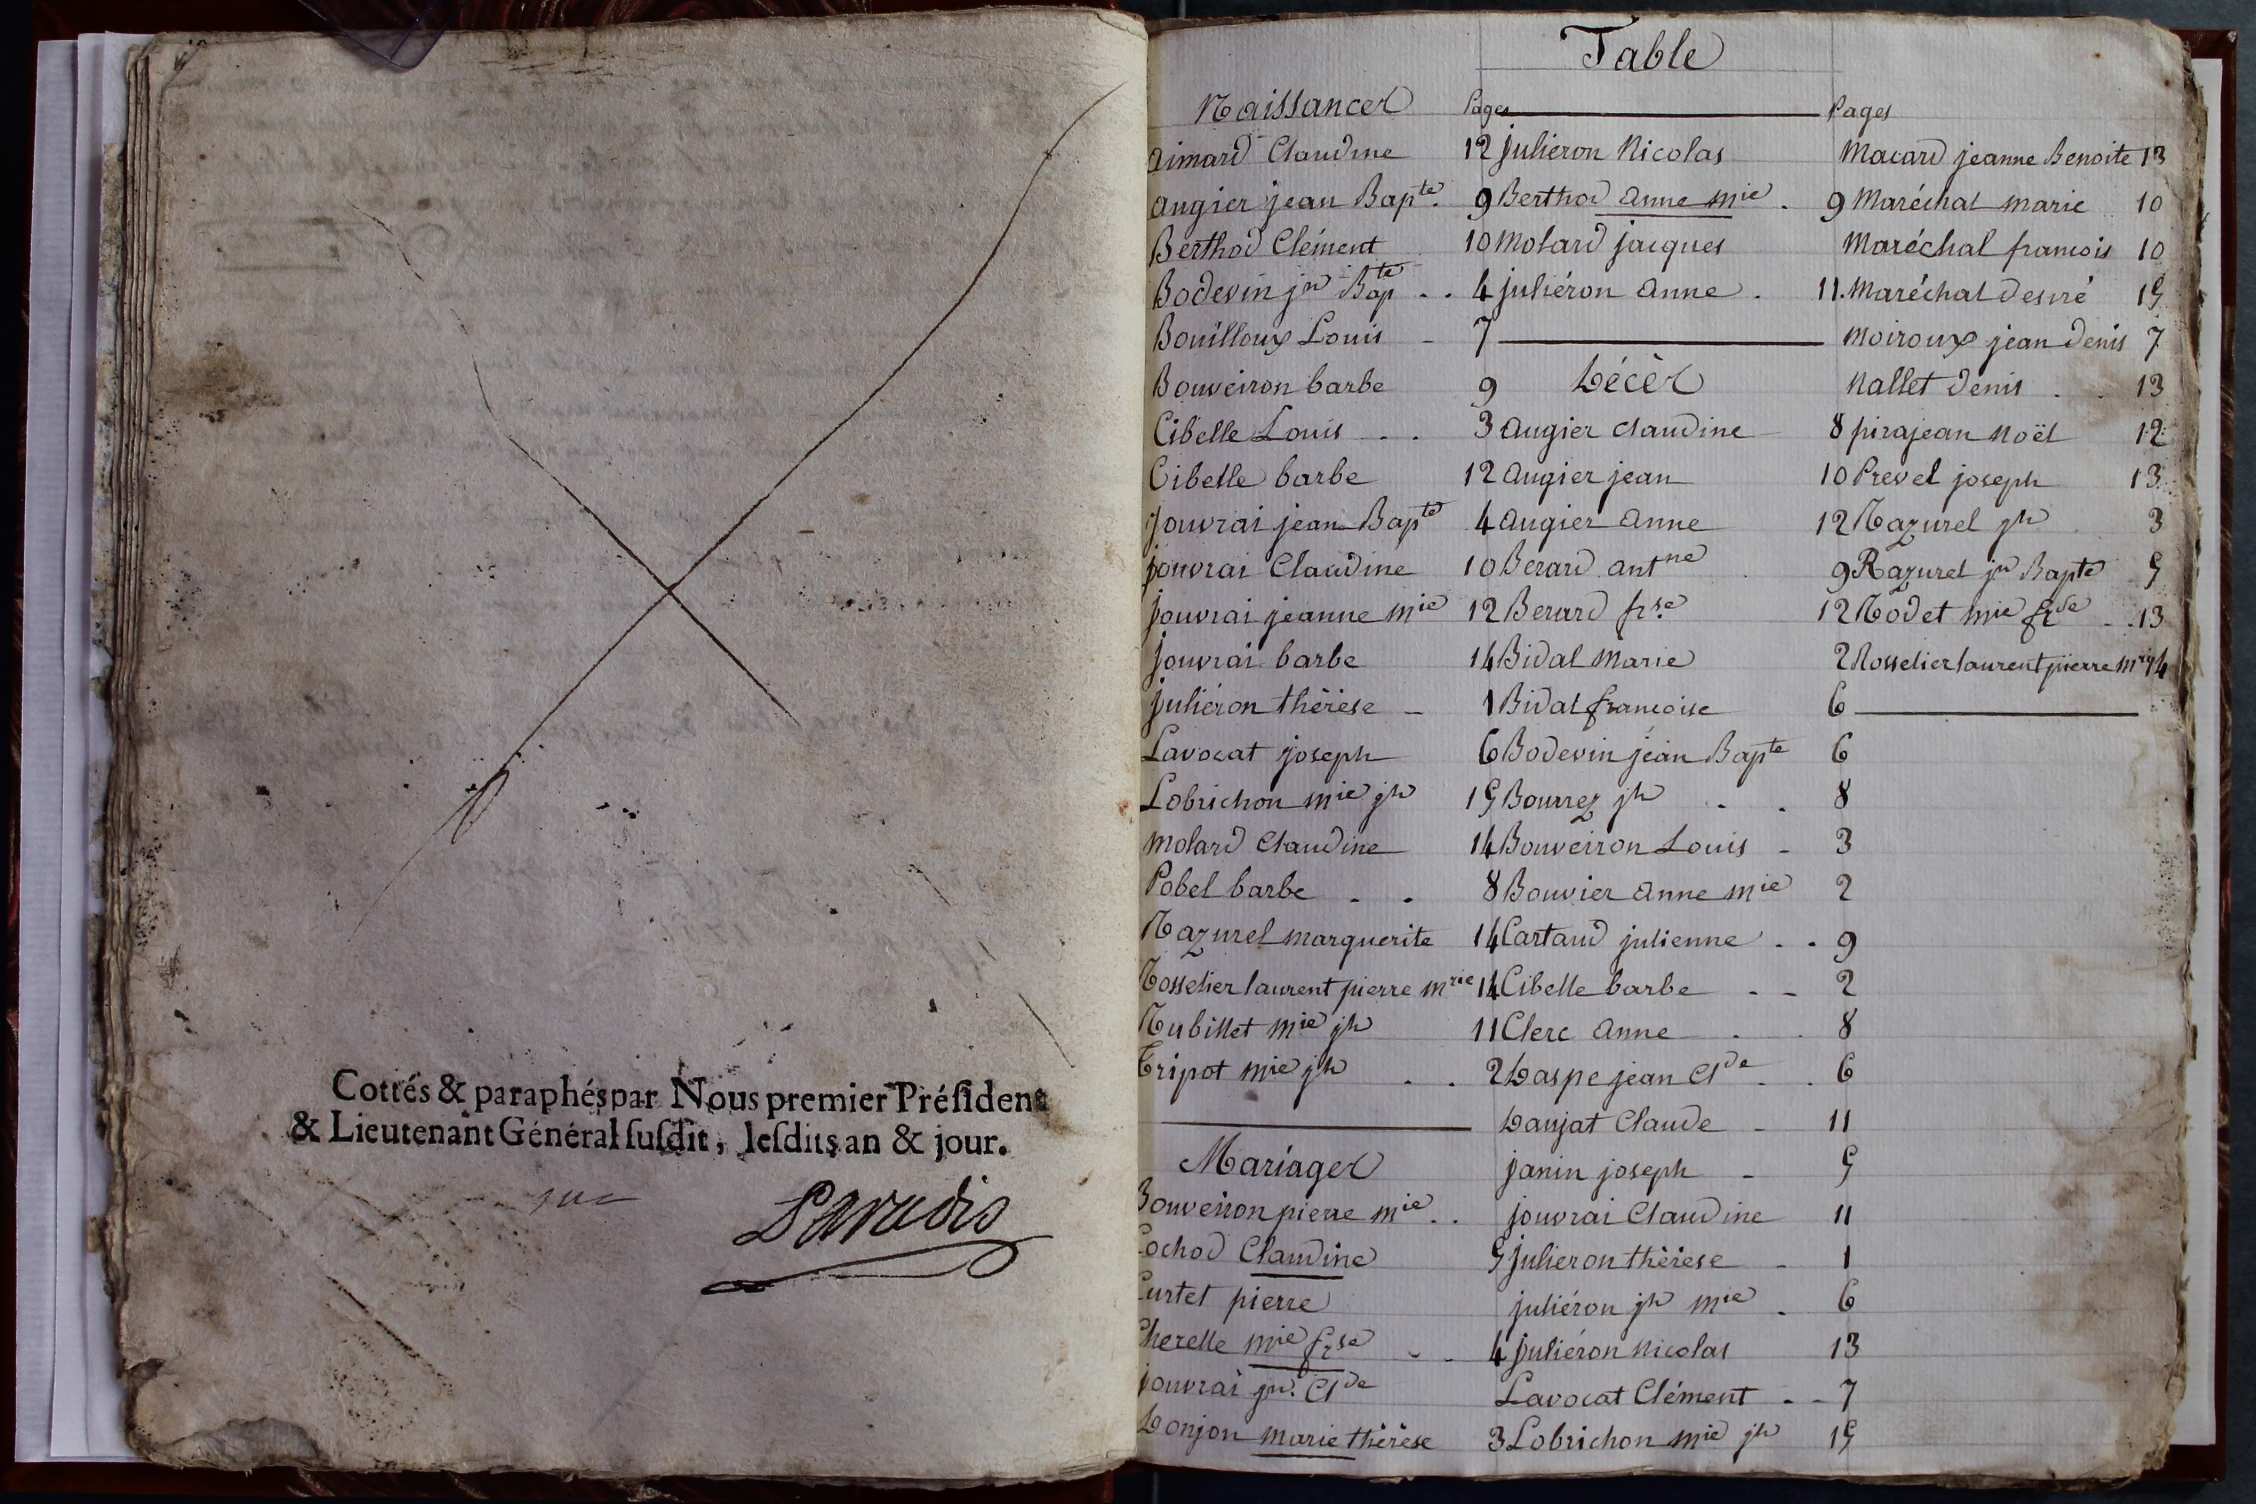 Cottés & paraphés par Nous premier Préſident
& Lieutenant Général ſuſdit, leſdits an & jour.
Paradis
Table
Naissances Pages
aimard Claudine 12
augier jean Bapte. 9
Berthod Clément 10
Bodevin jn Bapte . . 4
Bouilloux Louis - 7
Bouveiron barbe 9
Cibelle Louis . . 3
Cibelle barbe 12
Jouvrai jean Bapte 4
jouvrai Claudine 10
jouvrai jeanne mie 12
jouvrai barbe 14
juliéron thérèse - 1
Lavocat joseph 6
Lobrichon mie jh 15
molard Claudine 14
Pobel barbe . . 8
Razurel marguerite 14
Rosselier laurent pierre mrie 14
Rubillet mie jh 11
Tripot mie jh . . 2
Mariages
Bouveiron pierre mie . .
Cochod Claudine 5
Curtet pierre
Cherelle mie frse - - 4
jouvrai jn. Clde
Donjon marie thérèse 3
julieron Nicolas
Berthod anne mie . 9
molard jacques
juliéron anne . 11.
Décès
Pages
augier claudine 8
augier jean 10
augier anne 12
Berard antne 9
Berard frse 12
Bidal marie 2
Bidal francoise 6
Bodevin jean Bapte 6
Bourrez jh . . 8
Bouveiron Louis - 3
Bouvier anne mie 2
Cartaud julienne . . 9
Cibelle barbe - - 2
Clerc anne . . 8
Daspe jean Clde . . 6
Danjat Claude - 11
janin joseph - 5
jouvrai Claudine 11
julieron thérèse - 1
juliéron jh mie . 6
juliéron Nicolas 13
Lavocat Clément . - 7
Lobrichon mie jh 15
Macard jeanne Benoite 13
Maréchal marie 10
Maréchal francois 10
Maréchal desiré 15
Moiroux jean denis 7
Nallet denis . . 13
pirajean Noël 12
Prevel joseph 13
Razurel jh 3
Razurel jn Bapte 5
Rodet mie frse . . 13
Rosselier laurent pierre mrie 14